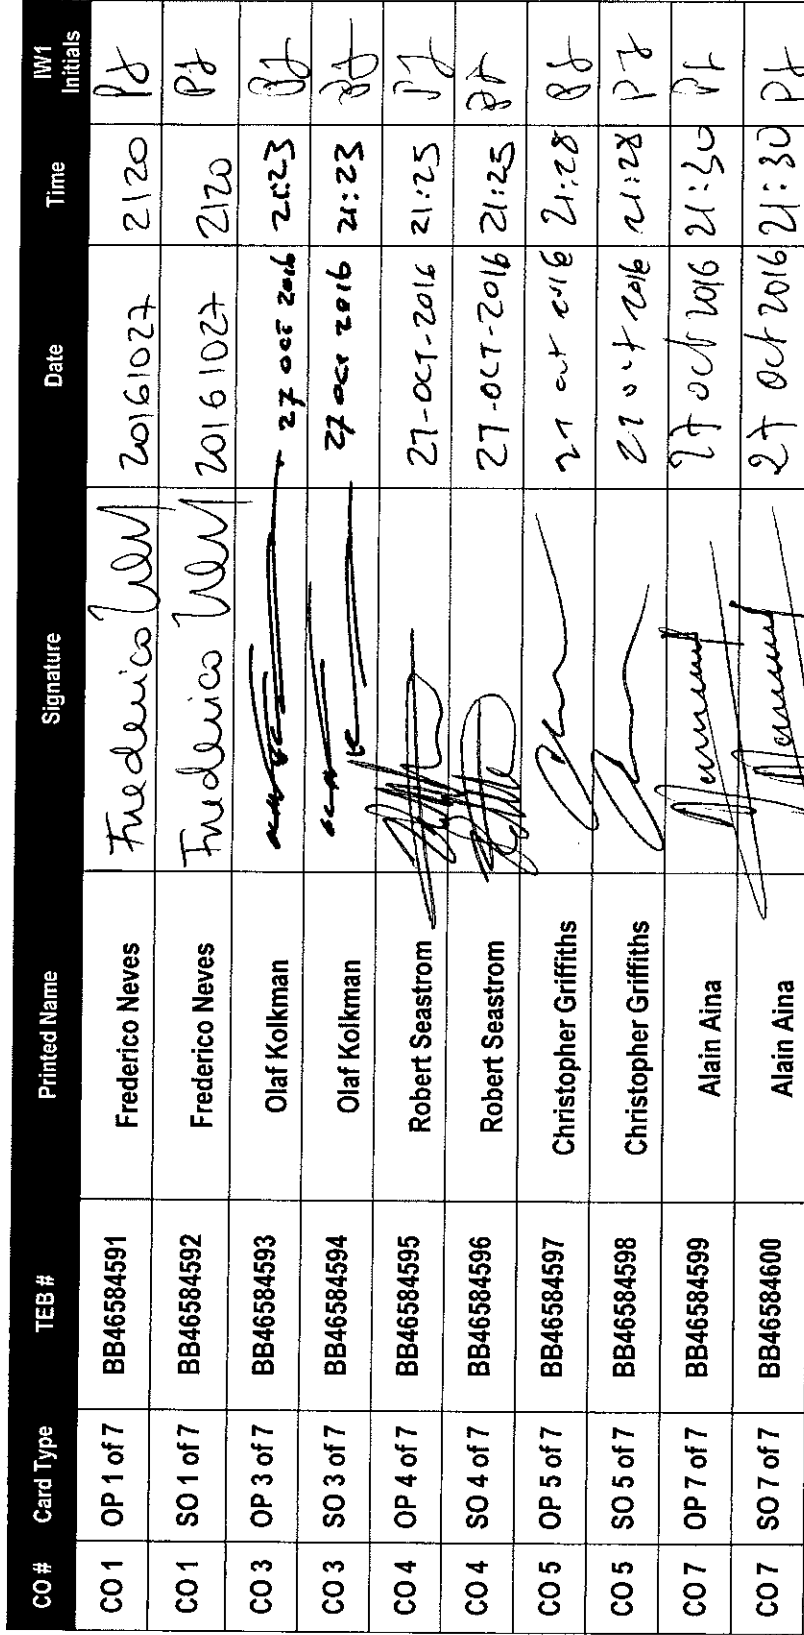 CO # Card Type TEB # Printed Name Signature Date Time IW1 Initials
CO 1 OP 1 of 7 BB46584591 Frederico Neves Frederico Neves 20161027 2120
CO 1 SO 1 of 7 BB46584592 Frederico Neves Frederico Neves 20161027 2120
CO 3 OP 3 of 7 BB46584593 Olaf Kolkman 27 oct 2016 21:23
CO 3 SO 3 of 7 BB46584594 Olaf Kolkman 27 oct 2016 21:23
CO 4 OP 4 of 7 BB46584595 Robert Seastrom 27-OCT-2016 21:25
CO 4 SO 4 of 7 BB46584596 Robert Seastrom 27-OCT-2016 21:25
CO 5 OP 5 of 7 BB46584597 Christopher Griffiths 27 oct 2016 21:28
CO 5 SO 5 of 7 BB46584598 Christopher Griffiths 27 oct 2016 21:28
CO 7 OP 7 of 7 BB46584599 Alain Aina 27 oct 2016 21:30
CO 7 SO 7 of 7 BB46584600 Alain Aina 27 oct 2016 21:30